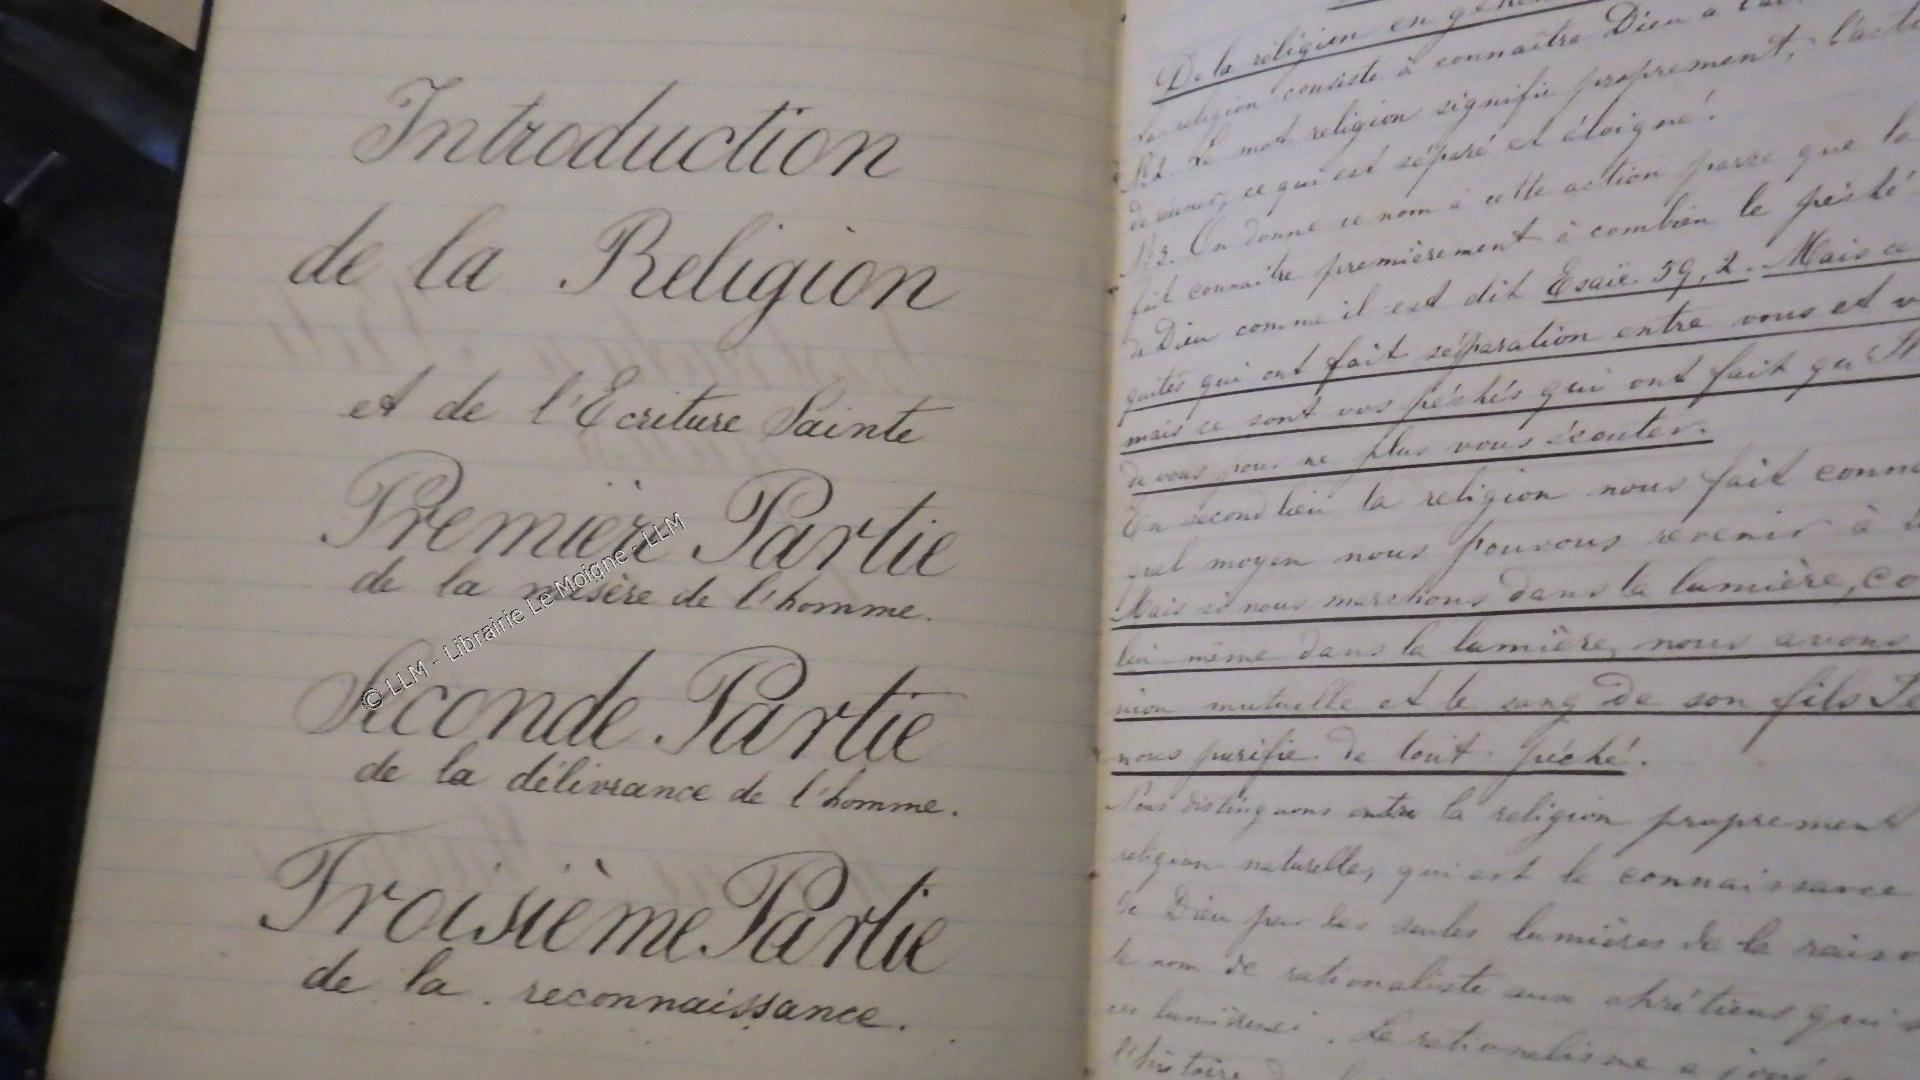 Introduction
de la Religion
et de l'Ecriture Sainte
Premièr Partie
de la misère de l'homme.
Seconde Partie
de la délivrance de l'homme.
Troisième Partie
de la reconnaissance.
© LLM - Librairie Le Moigne - LLM
De la réligion en géné
La religion consiste à connaître Dieu à
N: 2. Le mot religion signifie proprement, l'acti
de réunir, ce qui est séparé et éloigné.
N: 3. On donne ce nom à cette action parce que la
fait connaître premièrement à combien le péché
de Dieu comme il est dit Esaïe. 59, 2. Mais ce
quités qui ont fait séparation entre vous et v
mais ce sont vos péchés qui ont fait qu'Il
de vous pour ne plus vous écouter.
En second lieu la religion nous fait conna
quel moyen nous pouvons revenir à
Mais si nous marchons dans la lumière, co
lui même dans la lumière, nous avons
nion mutuelle et le sang de son fils Jé
nous purifie de tout péché.
Nous distinguons entre la religion proprement
religion naturelle, qui est la connaissance
de Dieu par les seules lumières de la raiso
le nom de rationaliste aux chrétiens qui s
ces lumières. Le rationalisme a joué
l'histoire de